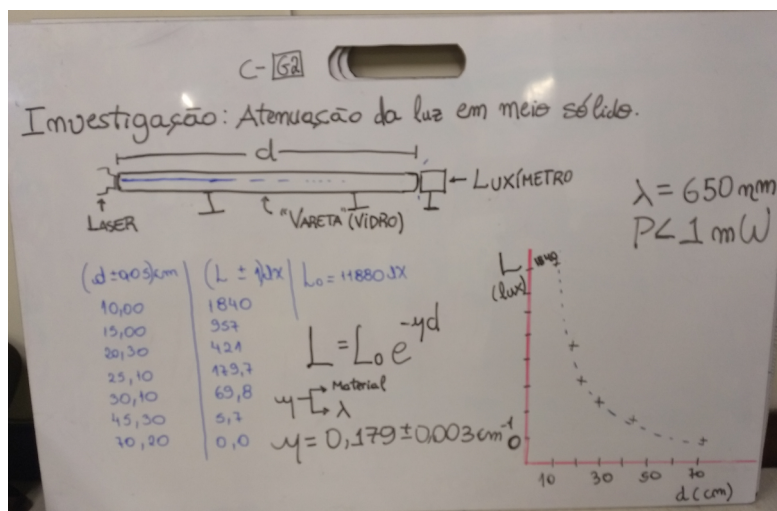 C-G2
Investigação: Atenuação da luz em meio sólido.
d
LASER
"VARETA" (VIDRO)
← LUXÍMETRO
λ = 650 nm
P < 1 mW
(d ± 0,05)cm (L ± 1)lx L₀ = 11880 lx
10,00 1840
15,00 957
20,30 421
25,10 179,7
30,10 69,8
45,30 5,7
70,20 0,0
L = L₀ e^-μd
μ → Material
→ λ
μ = 0,179 ± 0,003 cm⁻¹
L
(lux)
1840
0
10 30 50 70
d (cm)